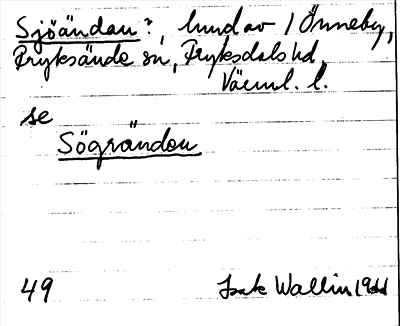 Sjöändan?, hund av 1 Önneby,
Fryksände sn, Fryksdals hd,
Värml. l.
se
Sögrändan
49 Isak Wallin 1944